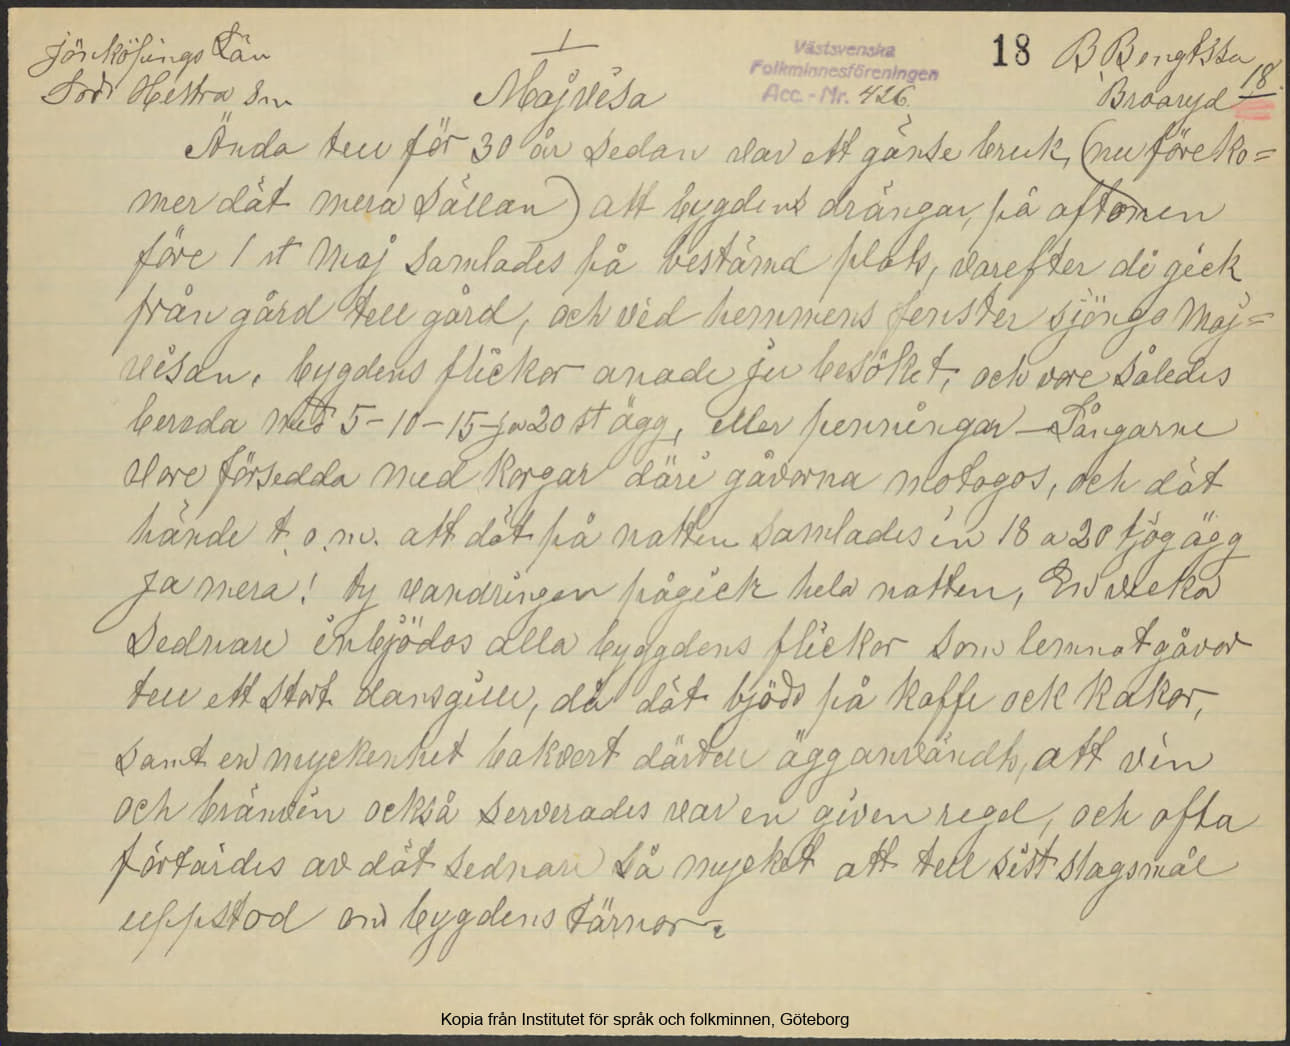 Jönköpings Län
Södr Hestra Sn
1
Majvisa
Västsvenska
Folkminnesföreningen
Acc. - Nr. 426.
18
B Bengtsson
Broaryd
18
Ända tell för 30 år sedan var ett gänse bruk, (nuföreko=
mer dät mera sällan) att bygdens drängar, på aftonen
före 1 st Maj samlades på bestämd plats, varefter di gick
från gård tell gård, och vid hemmens fenster sjöngo Maj=
visan. bygdens flickor anade ju besöket, och vore således
bereda med 5-10-15-ja 20 st ägg, eller penningar - Sångarne
vore försedda med korgar däri gåvorna motogos, och dät
hände t.o.m. att dät på natten samlades in 18 a 20 tjog ägg
ja mera! ty vandringen pågick hela natten, En vecka
sednare inbjödos alla byggdens flickor som lemnat gåvor
tell ett stort dansgille, då dät bjöds på kaffe ock kakor,
samt en myckenhet bakvert därtell ägg användts, att vin
och bränvin också serverades var en given regel, och ofta
förtärdes av dät sednare så mycket att tell sist slagsmål
uppstod om bygdens tärnor.
Kopia från Institutet för språk och folkminnen, Göteborg